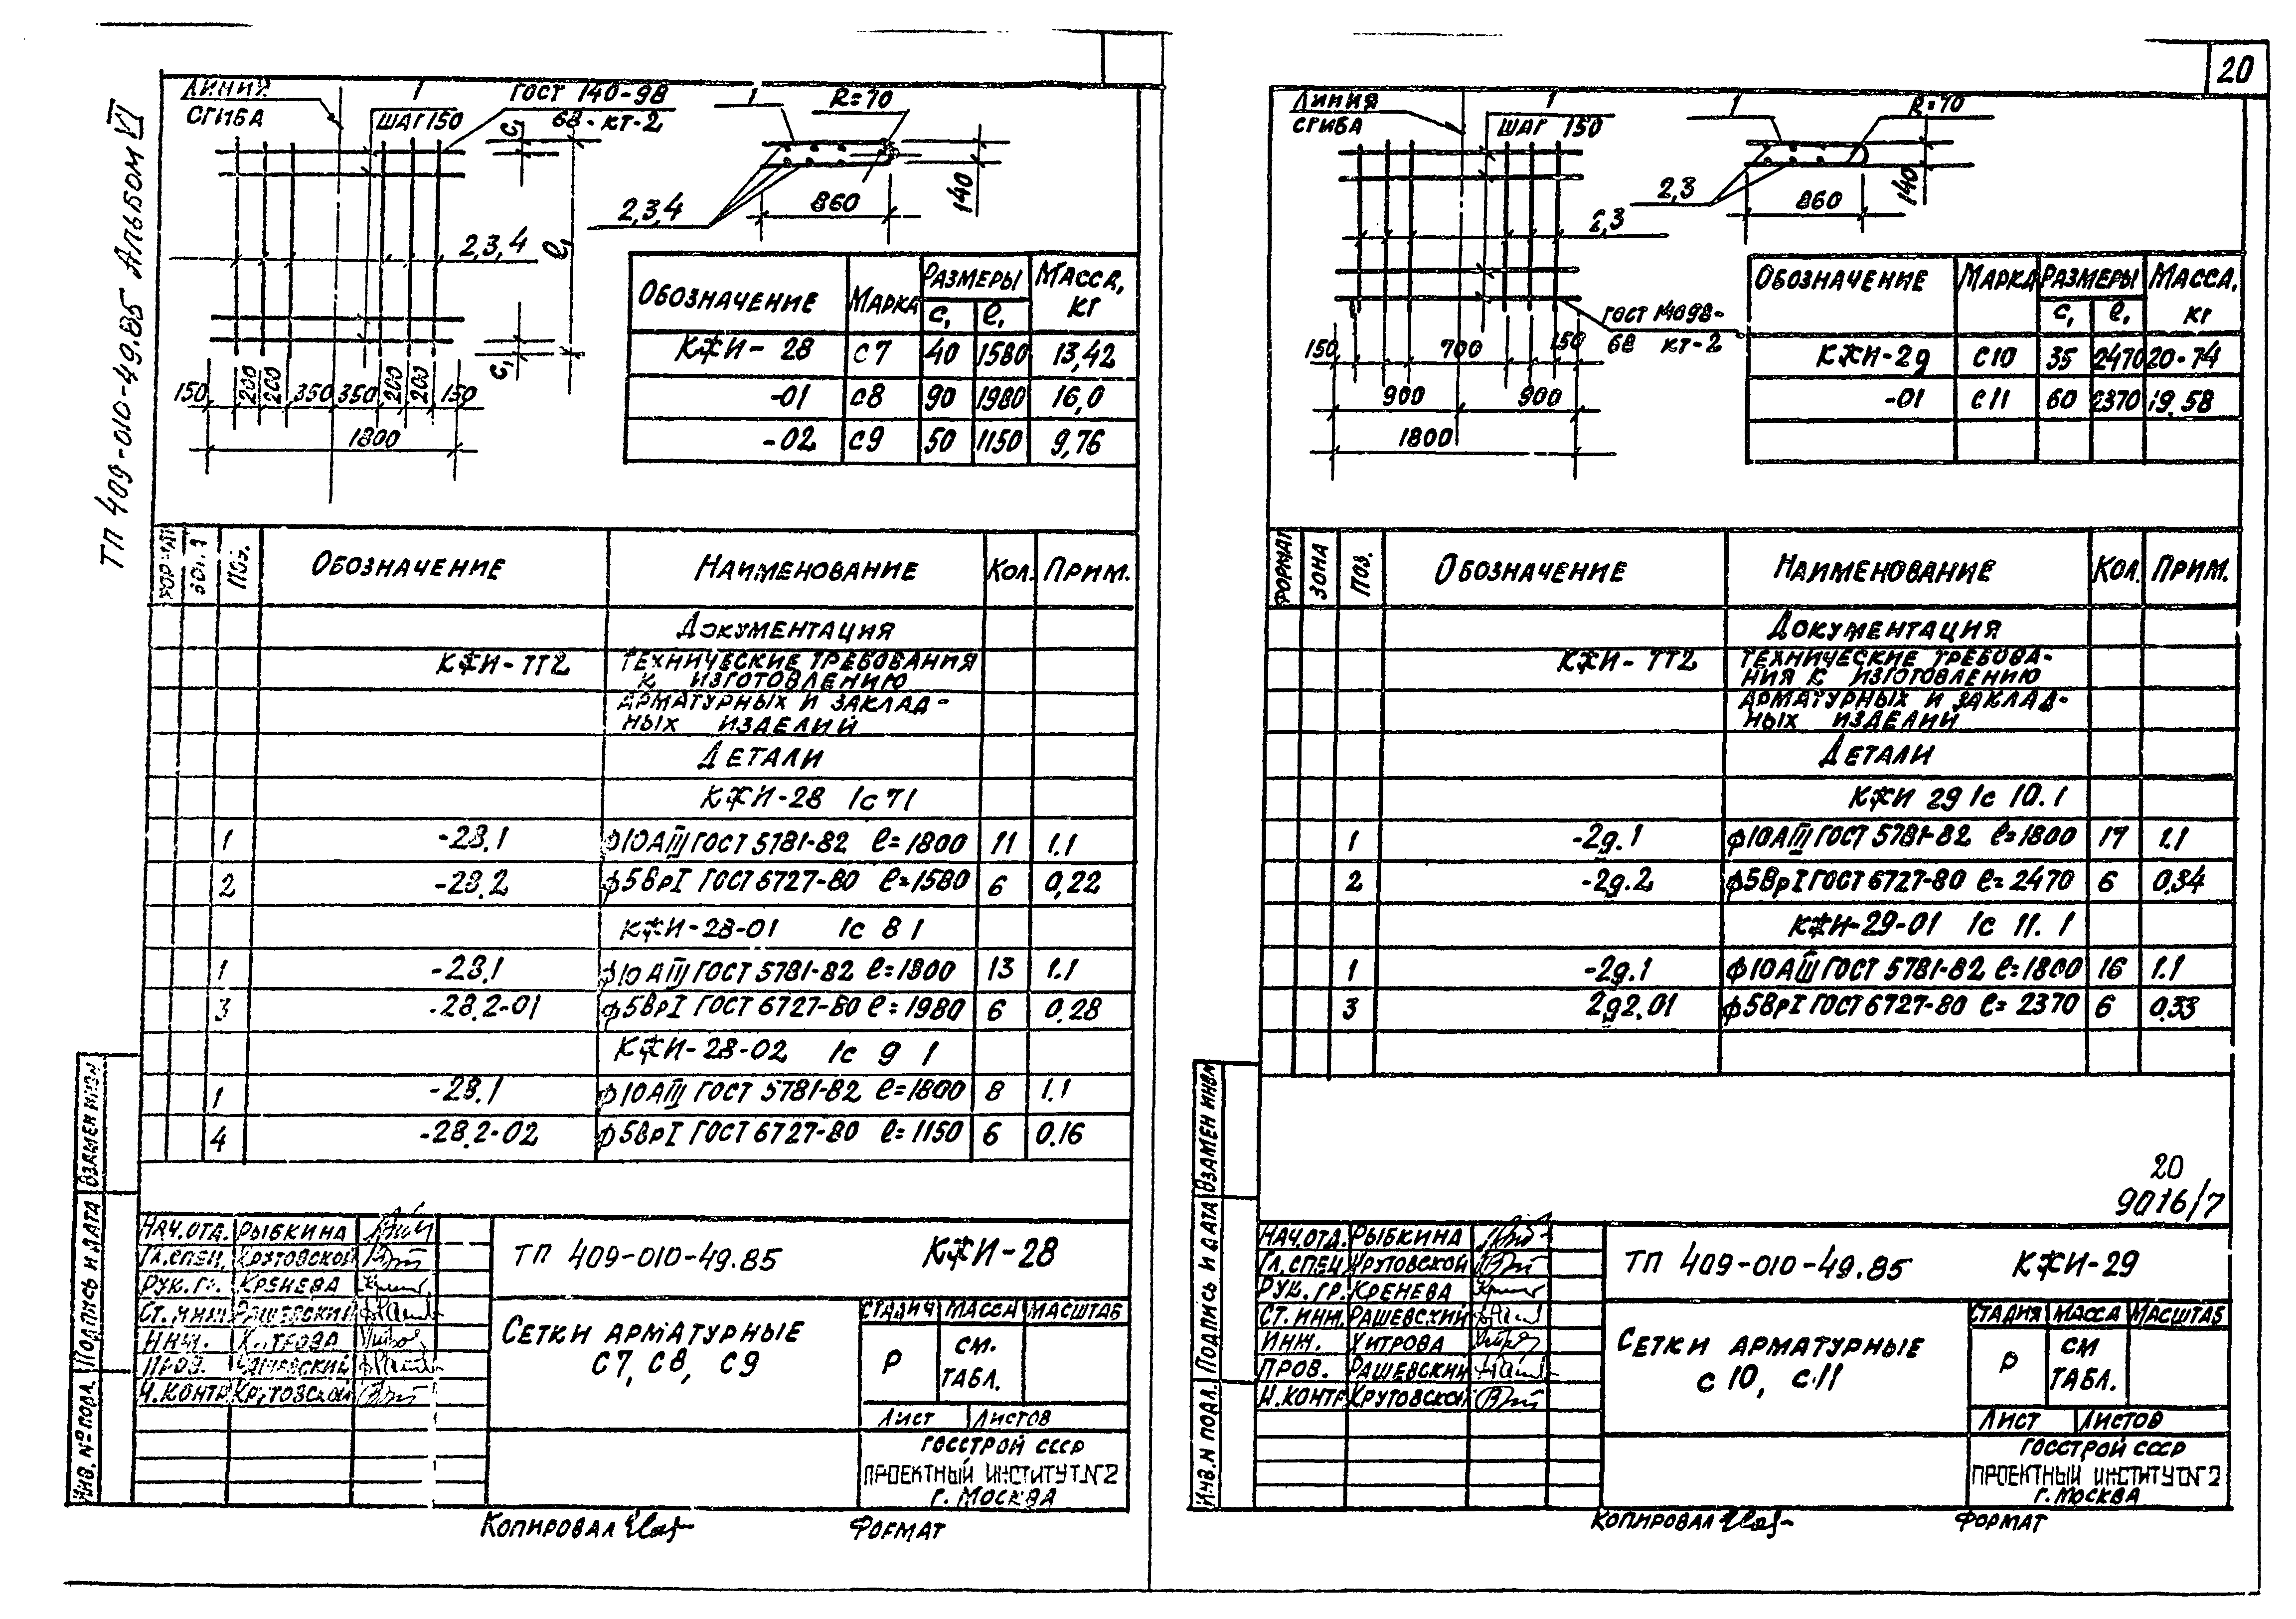 ТП 409-010-49.85 Альбом VI
ЛИНИЯ
СГИБА
1
ШАГ 150
ГОСТ 140-98
68-КТ-2
C₁
ℓ₁
C₁
2,3,4
150 200 200 350 350 200 200 150
1800
1
R=70
2,3,4
860
140
ОБОЗНАЧЕНИЕ МАРКА РАЗМЕРЫ МАССА, КГ
C₁ ℓ₁
КЖИ-28 С7 40 1580 13,42
-01 С8 90 1980 16,0
-02 С9 50 1150 9,76
ПОЗ. ОБОЗНАЧЕНИЕ НАИМЕНОВАНИЕ КОЛ. ПРИМ.
ДОКУМЕНТАЦИЯ
КЖИ-ТТ2 ТЕХНИЧЕСКИЕ ТРЕБОВАНИЯ
К ИЗГОТОВЛЕНИЮ
АРМАТУРНЫХ И ЗАКЛАД-
НЫХ ИЗДЕЛИЙ
ДЕТАЛИ
КЖИ-28 1с71
1 -28.1 ф10АIII ГОСТ 5781-82 ℓ=1800 11 1.1
2 -28.2 ф5ВрI ГОСТ 6727-80 ℓ=1580 6 0,22
КЖИ-28-01 1с 8 1
1 -28.1 ф10АIII ГОСТ 5781-82 ℓ=1800 13 1.1
3 -28.2-01 ф5ВрI ГОСТ 6727-80 ℓ=1980 6 0.28
КЖИ-28-02 1с 9 1
1 -28.1 ф10АIII ГОСТ 5781-82 ℓ=1800 8 1.1
4 -28.2-02 ф5ВрI ГОСТ 6727-80 ℓ=1150 6 0.16
ИНВ. № ПОДЛ. ПОДПИСЬ И ДАТА ВЗАМЕН ИНВ.
НАЧ.ОТД. РЫБКИНА
ГЛ.СПЕЦ. КРУТОВСКОЙ
РУК.ГР. КРЕНЕВА
СТ.ИНЖ. РАШЕВСКИЙ
ИНЖ. ХИТРОВА
ПРОВ. РАШЕВСКИЙ
Н.КОНТР. КРУТОВСКОЙ
ТП 409-010-49.85 КЖИ-28
СЕТКИ АРМАТУРНЫЕ
С7, С8, С9
СТАДИЯ МАССА МАСШТАБ
Р СМ. ТАБЛ.
ЛИСТ ЛИСТОВ
ГОССТРОЙ СССР
ПРОЕКТНЫЙ ИНСТИТУТ №2
г. МОСКВА
КОПИРОВАЛ ФОРМАТ
20
ЛИНИЯ
СГИБА
1
ШАГ 150
2,3
ГОСТ 14098-
68 КТ-2
150 700 150
900 900
1800
1
R=70
2,3
860
140
ОБОЗНАЧЕНИЕ МАРКА РАЗМЕРЫ МАССА, КГ
C₁ ℓ₁
КЖИ-29 С10 35 2470 20-74
-01 С11 60 2370 19.58
ФОРМАТ ЗОНА ПОЗ. ОБОЗНАЧЕНИЕ НАИМЕНОВАНИЕ КОЛ. ПРИМ.
ДОКУМЕНТАЦИЯ
КЖИ-ТТ2 ТЕХНИЧЕСКИЕ ТРЕБОВА-
НИЯ К ИЗГОТОВЛЕНИЮ
АРМАТУРНЫХ И ЗАКЛАД-
НЫХ ИЗДЕЛИЙ
ДЕТАЛИ
КЖИ 29 1с 10.1
1 -29.1 ф10АIII ГОСТ 5781-82 ℓ=1800 17 1.1
2 -29.2 ф5ВрI ГОСТ 6727-80 ℓ=2470 6 0.34
КЖИ-29-01 1с 11.1
1 -29.1 ф10АIII ГОСТ 5781-82 ℓ=1800 16 1.1
3 292.01 ф5ВрI ГОСТ 6727-80 ℓ=2370 6 0.33
20
9016/7
ИНВ.N ПОДЛ. ПОДПИСЬ И ДАТА ВЗАМЕН ИНВ.
НАЧ.ОТД. РЫБКИНА
ГЛ.СПЕЦ. КРУТОВСКОЙ
РУК.ГР. КРЕНЕВА
СТ.ИНЖ. РАШЕВСКИЙ
ИНЖ. ХИТРОВА
ПРОВ. РАШЕВСКИЙ
Н.КОНТР. КРУТОВСКОЙ
ТП 409-010-49.85 КЖИ-29
СЕТКИ АРМАТУРНЫЕ
С10, С11
СТАДИЯ МАССА МАСШТАБ
Р СМ ТАБЛ.
ЛИСТ ЛИСТОВ
ГОССТРОЙ СССР
ПРОЕКТНЫЙ ИНСТИТУТ №2
г. МОСКВА
КОПИРОВАЛ ФОРМАТ